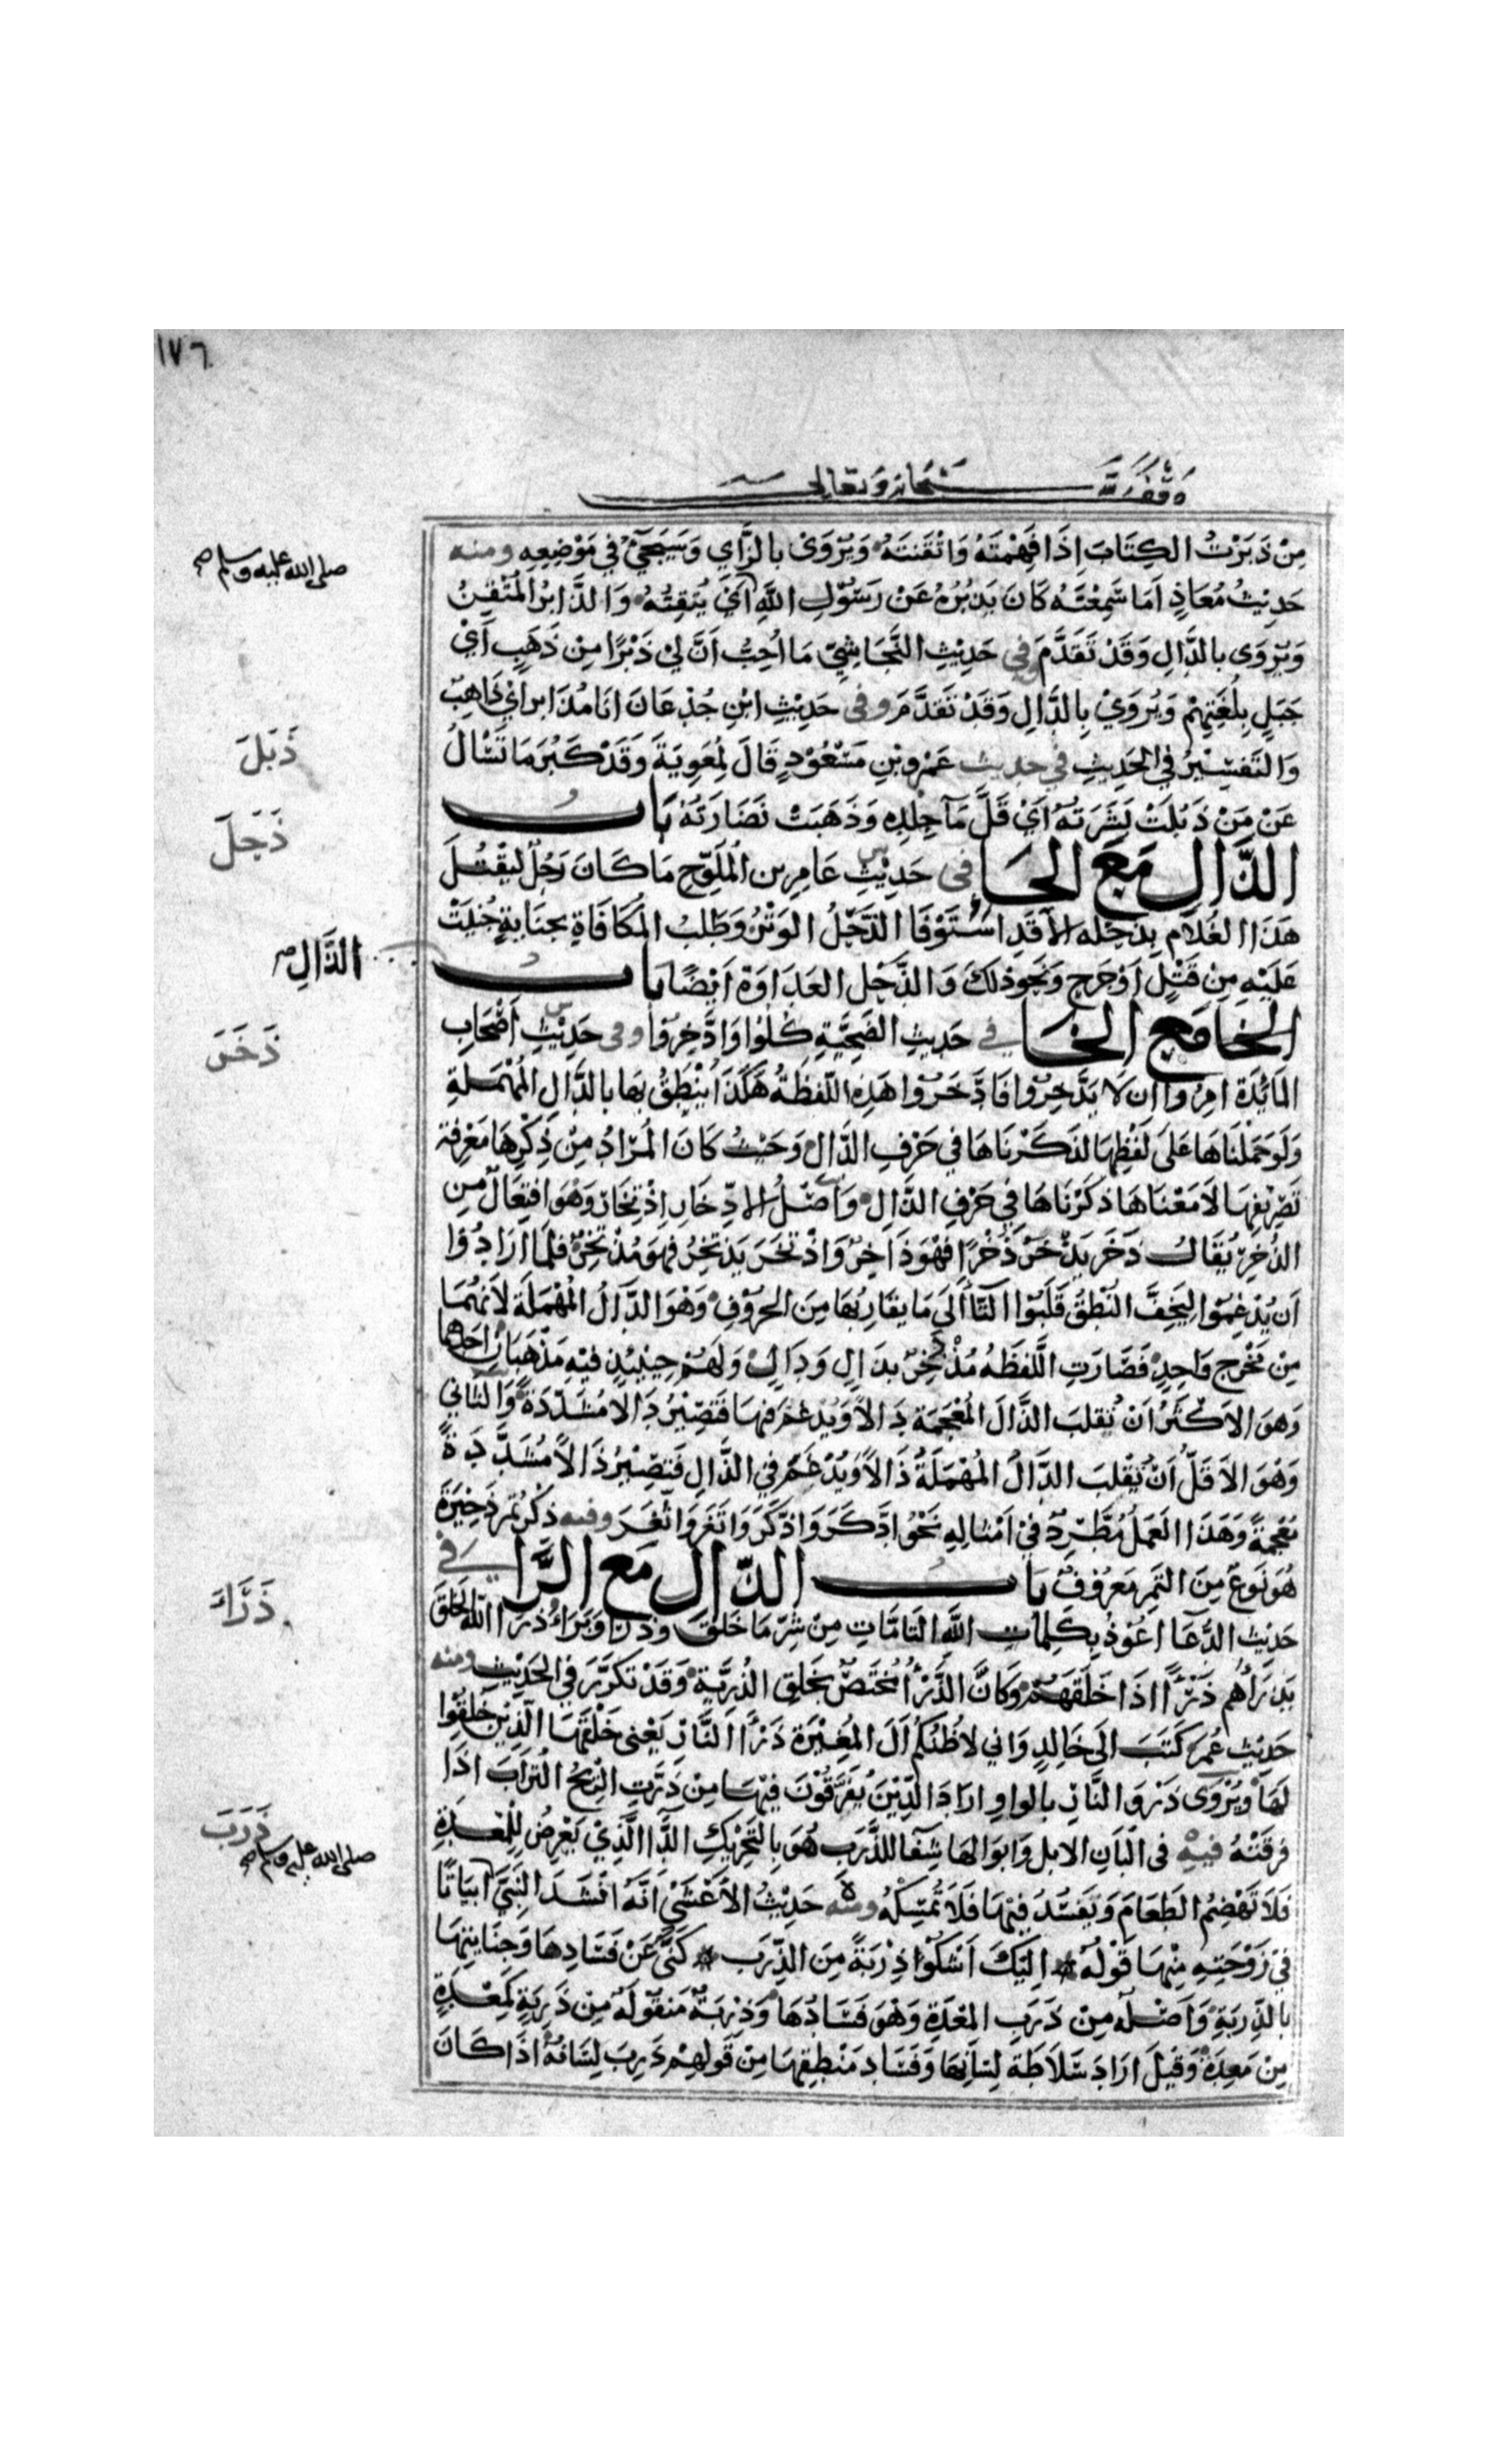 ١٧٦
وقف لله سبحانه وتعالى
مِنْ ذَبَرْتُ الكِتَابَ اِذَا فَهِمْتَهُ وَاَتْقَنْتَهُ وَيُرْوَىٰ بالزَّاي وَسَيَجِيْءُ فِي مَوْضِعِهِ ومنه
صلى الله عليه وسلم صح
حَدِيْثُ مُعَاذٍ اَمَا سَمِعْتَهُ كَانَ يَذْبُرُهُ عَنْ رَسُوْلِ اللَّهِ اَيْ يُتْقِنُهُ وَالذَّابِرُ المُتْقِنُ
وَيُرْوَى بالدَّالِ وَقَدْ تَقَدَّمَ وفي حَدِيْثِ النَّجَاشِيّ مَا اُحِبُّ اَنَّ لِيْ ذَبْرًا مِنْ ذَهَبٍ اَيْ
جَبَلٍ بِلُغَتِهِمْ وَيُرْوَيْ بِالدَّالِ وَقَدْ تَقَدَّمَ وفى حَدِيْثِ ابْنِ جُذْعَانَ انَا مُذَابِر اَيْ ذَاهِبٌ
ذَبَلَ
وَالتَّفْسِيْرُ فِي الحَدِيثِ في حديث عَمْرِو بْنِ مَسْعُوْدٍ قَالَ لِمُعٰوِيَةَ وَقَدْ كَبُرَ مَا تَسْأَلُ
عَنْ مَنْ ذَبُلَتْ بَشَرَتُهُ اَيْ قَلَّ مَآءُ جِلْدِهِ وَذَهَبَتْ نَضَارَتُهُ بَابُ
ذَحَلَ
الذَّالِ مَعَ الحَاء فى حَدِيْثِ عَامِرِ بن المُلَوَّحِ مَا كَانَ رَجُلٌ لِيَقْتُلَ
هَذَا الغُلَامَ بِذَحْلِهِ اِلَّا قَدِ اسْتَوْفَا الذَّحْلُ الوِتْرُ وَطَلَبُ المُكَافَاةِ بجِنَايَةٍ جُنِيَتْ
عَلَيْهِ مِنْ قَتْلٍ اَوْ جَرْحٍ وَنَحْوِ ذلكَ وَالذَّحْل العَدَاوَة اَيْضًا بابُ
الذَّالِ صح
الخا مَعَ الخَا في حَدِيثِ الضَّحِيَّةِ كُلُوْا وَادَّخِرُوْا وفى حَدِيْثِ اَصْحَابِ
ذَخَرَ
المَائِدَة اُمِرُوا ان لَا يَدَّخِرُوْا فَادَّخَرُوْا هَذِهِ اللَّفْظَةُ هَكَذَا يُنْطَقُ بهَا بالدَّالِ المُهْمَلةِ
وَلَوْ حَمَلْنَاهَا عَلَى لَفْظِهَا لَذَكَرْنَاهَا فِي حَرْفِ الدَّالِ وَحَيْثُ كَانَ المُرَادُ مِنْ ذِكْرِهَا مَعْرِفَة
تَصْرِيْفِهَا لَا مَعْنَاهَا ذكَرْنَاهَا فِي حَرْفِ الذَّالِ وَاَصْلُ الاِدِّخَارِ اِذْتِخَارٌ وَهْوَ افتِعَالٌ مِنَ
الذُّخْرِ يُقَالُ ذَخَرَ يَذْخَرُ ذُخْرًا فَهْوَ ذَاخِرٌ وَاذْتَخَرَ يَذْتَخِرُ فهوَ مُذْتَخِرٌ فلمَّا اَرَادُوْا
اَنْ يُدْغِمُوْا لِيَخِفَّ النُّطْقُ قَلَبُوْا التَّآء اِلَى مَا يقَارِبُهَا مِنَ الحُرُوْفِ وَهْوَ الدَّالُ المُهْمَلَة لِاَنَّهُمَا
مِنْ مَخْرَجٍ وَاحِدٍ فَصَارَتِ اللَّفْظَةُ مُذْدَخِرٌ بِذَالٍ وَدَالٍ وَلَهُمْ حِيْنَئِذٍ فِيْهِ مَذْهَبَانِ احَدُهُمَا
وَهْوَ الاَكْثَرُ اَنْ تُقلبَ الذَّالَ المُعْجَمَة دَالًا وَيُدْغَمُ فِيْهَا فَتَصِيْرُ دَالًا مُشَدَّدَةً وَالثَّانِي
وَهْوَ الاَقَلُّ اَنْ تُقْلَبَ الدَّالُ المُهْمَلَةُ ذَالًا وَيُدْغَمُ فِي الذَّالِ فَتَصِيْرُ ذَالًا مُشَدَّدَةً
مُعْجمَةً وَهَذَا العَمَلُ مُطَّرِدٌ فِيْ اَمْثَالِهِ نَحْوُ ادَّكَرَ وَاذَّكَرَ وَاتَّغَرَ وَاثَّغَرَ وفيه ذِكْرُ تَمْرِ ذَخِيْرَةَ
هُوَ نَوْعٌ مِنَ التَّمْرِ مَعْرُوْفٌ بَابُ الذَّالِ مَعَ الرَّا في
ذَرَأَ
حَدِيْثِ الدُّعَا اَعُوْذُ بِكَلِمَاتِ اللَّهِ التَّامَّاتِ مِنْ شَرِّ مَا خَلَقَ وَذَرَأ وَبَرَاءَ ذَرَأَ اللّه الخَلقَ
يَذْرَأُهُم ذَرْأً اِذَا خَلَقَهُمْ وَكَانَّ الذَّرْأَ مُخْتَصٌّ بخَلِقِ الذُّرِّيَّةِ وَقَدْ تَكَرَّرَ فِي الحَدِيْثِ ومنه
حَدِيْثُ عُمَرَ كَتَبَ الَى خَالِدٍ وَاِنِي لاَظُنُّكُم اَلَ المُغِيْرَة ذَرْأَ النَّارِ يَعْنى خَلْقَهَا الَّذِيْنَ خُلِقُوْا
لَهَا وَيُرْوَى ذَرْوَ النَّارِ بالواوِ ارَادَ الَّذِيْنَ يُفَرَّقُوْنَ فِيْهَا مِنْ ذَرَتِ الرِّيْحُ التُّرَابَ اذَا
ذَرَبَ
فَرقَتْهُ فيهِ فى اَلْبَانِ الابل وَابوَالهَا شِفَآءٌ لِلذَّرَبِ هُوَ بِالتَّحْرِيْكِ الدَّاء الَّذِيْ يَعْرِضُ لِلْمَعِدَةِ
صلى الله عليه وسلم صح
فَلَا تَهْضِمُ الطَّعَامَ وَيَفْسُدُ فِيْهَا فَلَا تُمْسِكُهُ ومنه حَدِيْثُ الاَعْشَىْ اَنَّهُ اَنْشَدَ النَّبِيَّ اَبْيَاتًا
فِيْ زَوْجَتِهِ مِنْهَا قَوْلُهُ * اِلَيْكَ اَشْكُوْا ذِرْبَةً مِنَ الذِّرَبِ * كَنَّى عَنْ فَسَادِهَا وَخِيَانتِهَا
بالذِّرْبَةِ وَاَصْلُه مِنْ ذَرَبِ المَعِدَةِ وَهْوَ فَسَادُهَا وَذِرْبَةٌ مَنقُوْلَة مِنْ ذَرِبَةٍ كَمَعِدَةٍ
مِنْ مَعِدَةٍ وَقيْلَ ارَادَ سَلَاطَةَ لِسَانِهَا وَفَسَادَ مَنْطِقِهَا مِنْ قَوْلِهِمْ ذَرِبَ لِسَانُهُ اذَا كَانَ